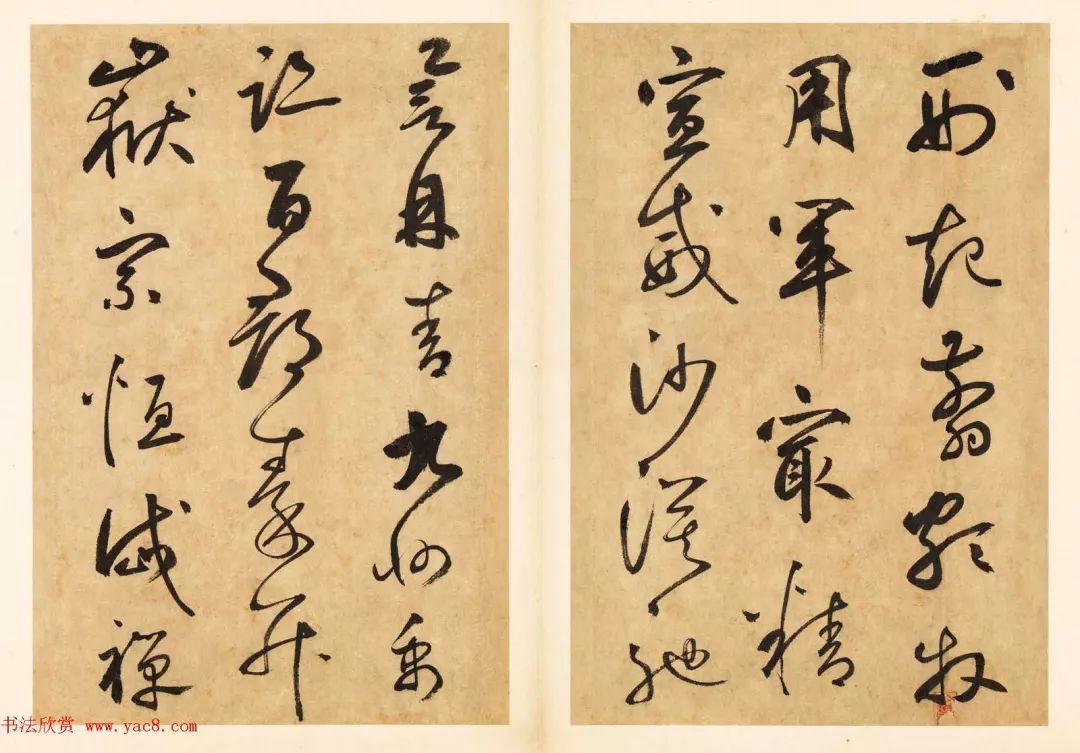 刑起翦頗牧
用軍最精
宣威沙漠馳
譽丹青九州禹
跡百郡秦并
嶽宗恒岱禪
书法欣赏 www.yac8.com